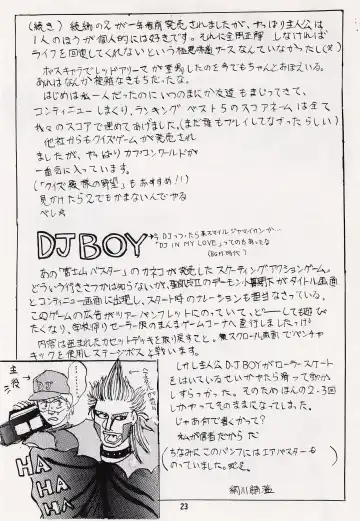 (続き) 続編の2が一年後発売されましたが、やっぱり主人公は
1人のほうが個人的には好きです。それに全問正解しなければ
ライフを回復してくれないという
ボスキャラでレッドアリーマーが登場したのを今でもちゃんとおぼえている。
あれはなんか複雑なきもちだったな。
はじめは私一人だったのにいつのまにか友達もまじってきて、
コンティニューしまくり、ランキングベスト5のスコアネームは全て
我々のスコアで埋めてあげました。(まだ誰もプレイしてなかったらしい)
他社からもクイズゲームが発売され
ましたが、やっぱりカプコンワールドが
一番気に入っています。
(「クイズ殿様の野望」もおすすめ!!)
見かけたら2でもかまないんでやる
べし☆
DJ BOY
DJっつったら東スマイルジャマイカンか…
"DJ IN MY LOVE"ってのもあったな
あの「富士山バスター」のカネコが発売したスケーティングアクションゲーム。
どういう行きさつかは知らないが、聖飢魔Ⅱのデーモン小暮閣下がタイトル画面
とコンティニュー画面に出現し、スタート時のナレーションも担当なさっている。
このゲームの広告がツアーパンフレットにのっていて、ど〜しても遊び
たくなり、学校帰りセーラー服のまんまゲームコーナへ直行しましたっけ?
内容は盗まれたカセットデッキを取り戻すこと。横スクロール画面でパンチや
キックを使用しステージボスと戦います。
しかし主人公DJ BOYがローラースケート
をはいているせいかやたら滑って動か
しずらかった。そのためほんの2・3回
しかやってそのままになってしまった。
じゃあ何で書くかって?
私が信者だからだ
(ちなみにこのパンフにはエアバスターも
のっていました。蛇足。
主役
DJ
HA
HA
HA
23